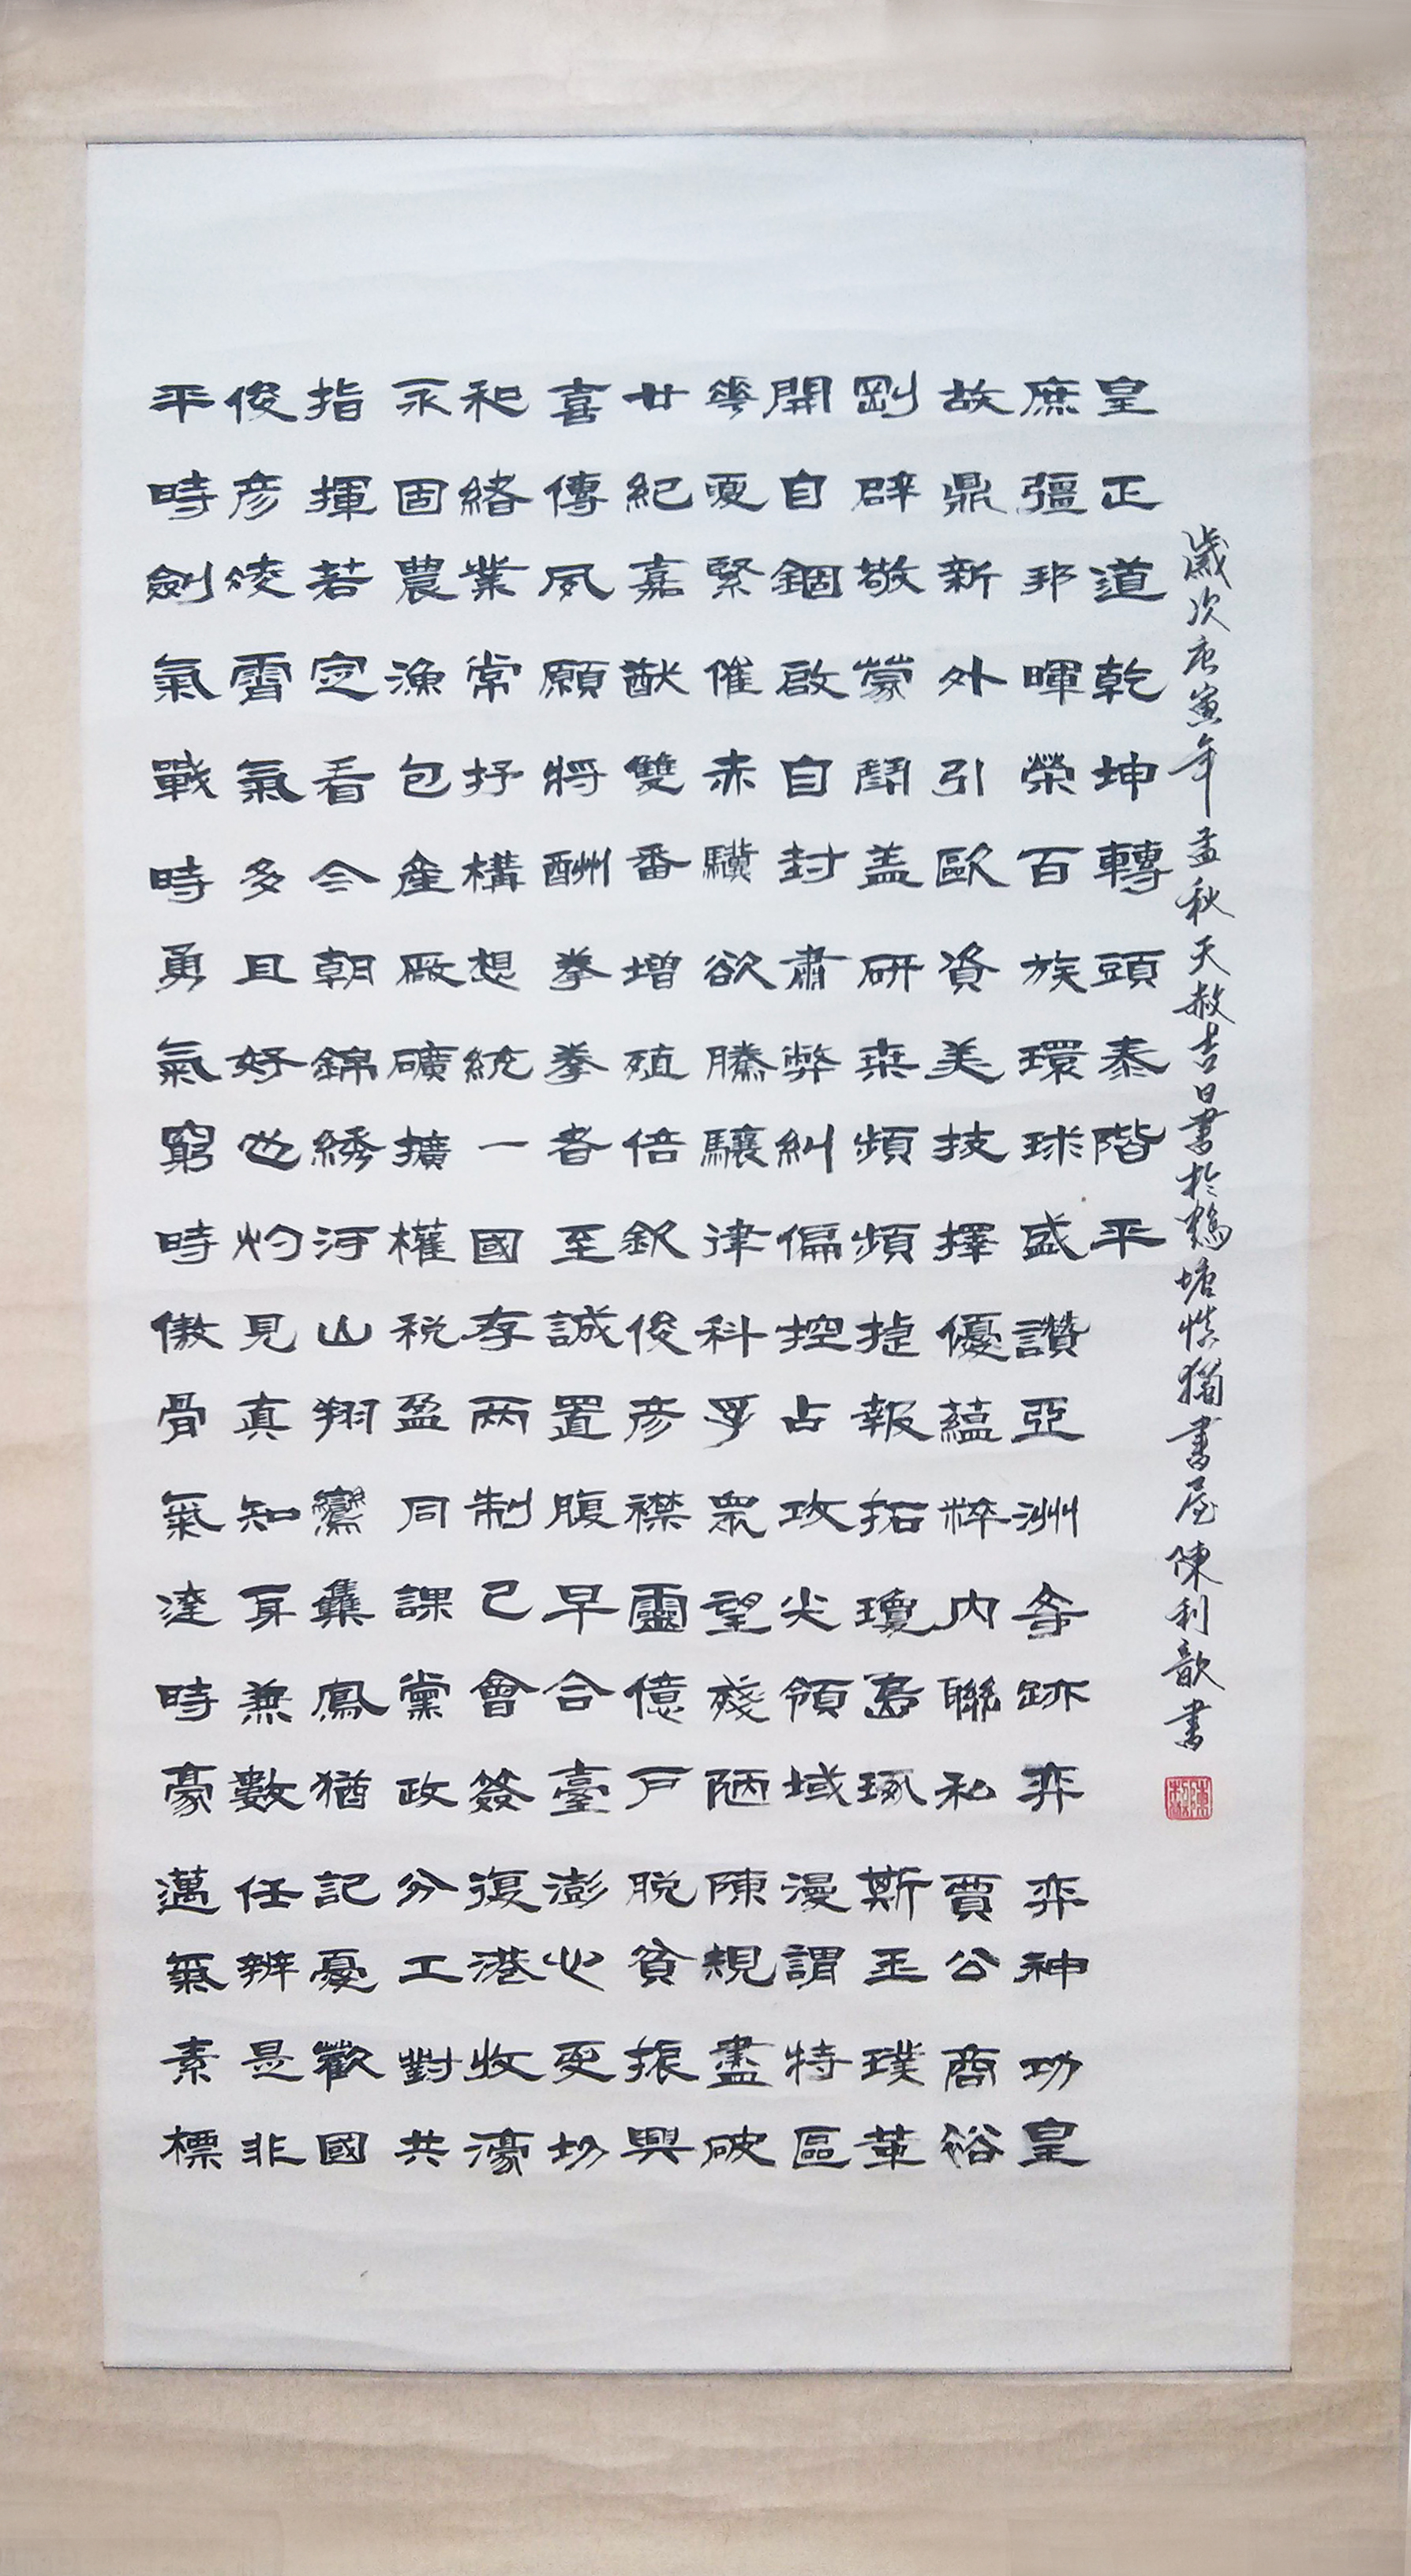 平時劍氣戰時勇氣窮時傲骨氣達時豪邁氣素標
俊彦淩霄氣多且好也灼見真知耳兼數任辨是非
指揮若定看今朝錦綉河山翔鸞集鳳猶記憂歡國
永固農漁包產廠礦擴權税盈同課黨政分工對共
和緒業常抒構想統一國存兩制己會簽復港收濠
喜傳夙願將酬拳拳者至誠置腹早合臺澎心更切
廿紀嘉猷雙番增殖倍欽俊彦襟靈億戶脱貧振興
華夏緊催赤驥欲騰驤律科孚衆望殘陋陳規盡破
開自錮啟自封肅弊糾偏控占攻尖領域漫謂特區
剛辟敬蒙闢盖研桒頻頻捷報拓瓊島琢斯玉璞革
故鼎新外引歐資美技擇優蘊粹内聯私賈公商裕
庶彊邦暉榮百族環球盛讚亞洲奇跡弈弈神功皇
皇正道乾坤轉頭泰階平
歲次庚寅年孟秋天赦吉日書於鶴塘慎獨書屋陳利歆書